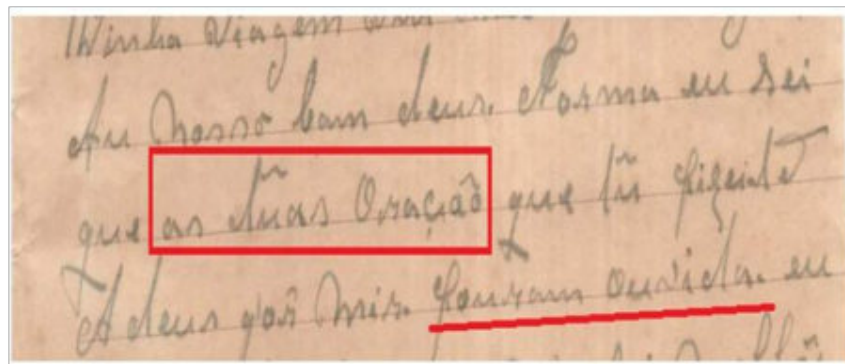 Minha Viagem
Au Nosso bom deus. Norma eu sei
que as tũas Oração que tũ fizeste
A deus por mim. fouram ouvida. eu